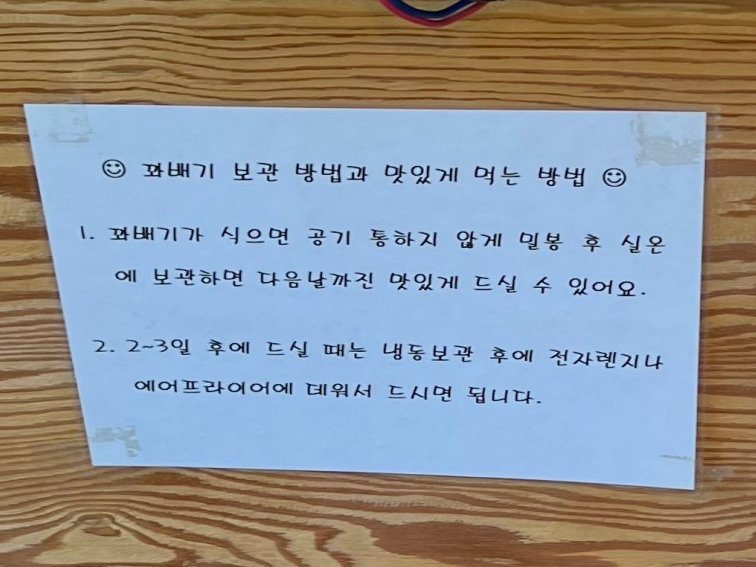 ☺ 꽈배기 보관 방법과 맛있게 먹는 방법 ☺
1. 꽈배기가 식으면 공기 통하지 않게 밀봉 후 실온
에 보관하면 다음날까진 맛있게 드실 수 있어요.
2. 2~3일 후에 드실 때는 냉동보관 후에 전자렌지나
에어프라이어에 데워서 드시면 됩니다.